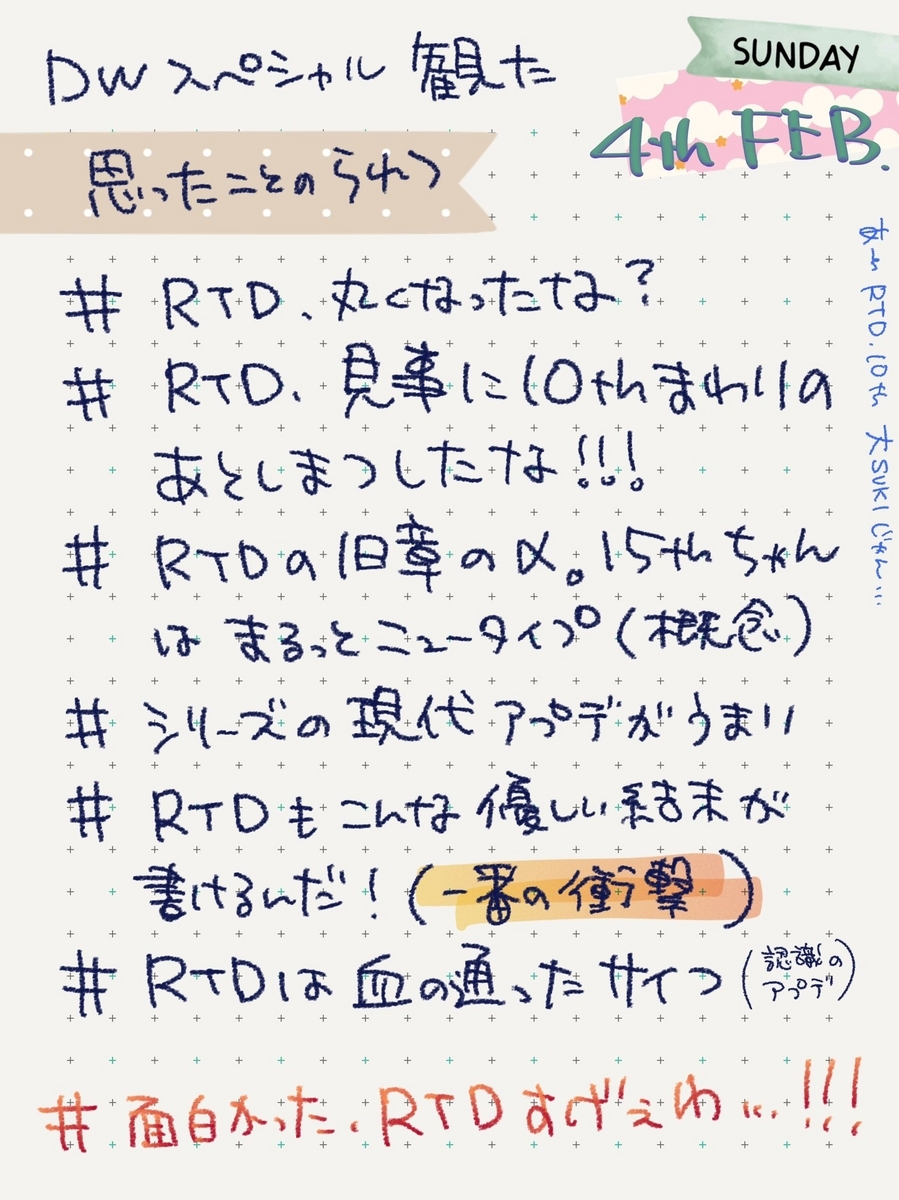 SUNDAY
4th FEB.
DW スペシャル 観た
思ったことのられつ
# RTD、丸くなったな?
# RTD、見事に10thまわりの
あとしまつしたな!!!
# RTDの旧章のα。15thちゃん
は まるっとニュータイプ(概念)
# シリーズの現代アプデがうまい
# RTDもこんな優しい結末が
書けるんだ!(一番の衝撃)
# RTDは血の通ったサイコ(認識の
アプデ)
# 面白かった、RTDすげぇわ...!!!
あーRTD、10th 大SUKIじゃん...